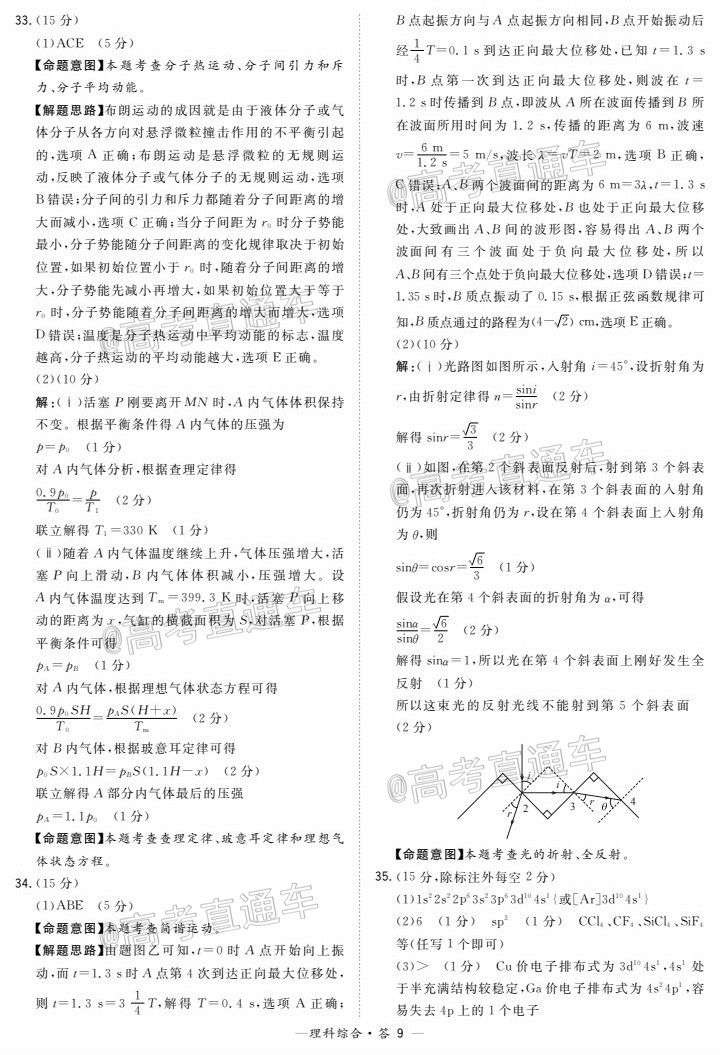 33.(15分)
(1)ACE (5分)
【命题意图】本题考查分子热运动、分子间引力和斥
力、分子平均动能。
【解题思路】布朗运动的成因就是由于液体分子或气
体分子从各方向对悬浮微粒撞击作用的不平衡引起
的,选项A正确;布朗运动是悬浮微粒的无规则运
动,反映了液体分子或气体分子的无规则运动,选项
B错误;分子间的引力和斥力都随着分子间距离的增
大而减小,选项C正确;当分子间距为r₀时分子势能
最小,分子势能随分子间距离的变化规律取决于初始
位置,如果初始位置小于r₀时,随着分子间距离的增
大,分子势能先减小再增大,如果初始位置大于等于
r₀时,分子势能随着分子间距离的增大而增大,选项
D错误;温度是分子热运动中平均动能的标志,温度
越高,分子热运动的平均动能越大,选项E正确。
(2)(10分)
解:(ⅰ)活塞P刚要离开MN时,A内气体体积保持
不变。根据平衡条件得A内气体的压强为
p=p₀ (1分)
对A内气体分析,根据查理定律得
0.9p₀/T₀=p/T₁ (2分)
联立解得T₁=330 K (1分)
(ⅱ)随着A内气体温度继续上升,气体压强增大,活
塞P向上滑动,B内气体体积减小,压强增大。设
A内气体温度达到Tₘ=399.3 K时,活塞P向上移
动的距离为x,气缸的横截面积为S,对活塞P,根据
平衡条件可得
p_A=p_B (1分)
对A内气体,根据理想气体状态方程可得
0.9p₀SH/T₀=p_AS(H+x)/Tₘ (2分)
对B内气体,根据玻意耳定律可得
p₀S×1.1H=p_BS(1.1H-x) (2分)
联立解得A部分内气体最后的压强
p_A=1.1p₀ (1分)
【命题意图】本题考查查理定律、玻意耳定律和理想气
体状态方程。
34.(15分)
(1)ABE (5分)
【命题意图】本题考查简谐运动。
【解题思路】由题图乙可知,t=0时A点开始向上振
动,而t=1.3 s时A点第4次到达正向最大位移处,
则t=1.3 s=3 1/4 T,解得T=0.4 s,选项A正确;
B点起振方向与A点起振方向相同,B点开始振动后
经1/4T=0.1 s到达正向最大位移处,已知t=1.3 s
时,B点第一次到达正向最大位移处,则波在t=
1.2 s时传播到B点,即波从A所在波面传播到B所
在波面所用时间为1.2 s,传播的距离为6 m,波速
v=6 m/1.2 s=5 m/s,波长λ=vT=2 m,选项B正确,
C错误;A、B两个波面间的距离为6 m=3λ,t=1.3 s
时,A处于正向最大位移处,B也处于正向最大位移
处,大致画出A、B间的波形图,容易得出A、B两个
波面间有三个波面处于负向最大位移处,所以
A、B间有三个点处于负向最大位移处,选项D错误;t=
1.35 s时,B质点振动了0.15 s,根据正弦函数规律可
知,B质点通过的路程为(4-√2) cm,选项E正确。
(2)(10分)
解:(ⅰ)光路图如图所示,入射角i=45°,设折射角为
r,由折射定律得n=sini/sinr (2分)
解得sinr=√3/3 (2分)
(ⅱ)如图,在第2个斜表面反射后,射到第3个斜表
面,再次折射进入该材料,在第3个斜表面的入射角
仍为45°,折射角仍为r,设在第4个斜表面上入射角
为θ,则
sinθ=cosr=√6/3 (1分)
假设光在第4个斜表面的折射角为α,可得
sinα/sinθ=√6/2 (2分)
解得sinα=1,所以光在第4个斜表面上刚好发生全
反射 (1分)
所以这束光的反射光线不能射到第5个斜表面
(2分)
i
i
2
r
3
r
θ
4
【命题意图】本题考查光的折射、全反射。
35.(15分,除标注外每空2分)
(1)1s²2s²2p⁶3s²3p⁶3d¹⁰4s¹{或[Ar]3d¹⁰4s¹}
(2)6 (1分) sp³ (1分) CCl₄、CF₄、SiCl₄、SiF₄
等(任写1个即可)
(3)> (1分) Cu价电子排布式为3d¹⁰4s¹,4s¹处
于半充满结构较稳定,Ga价电子排布式为4s²4p¹,容
易失去4p上的1个电子
—理科综合·答 9 —
@高考直通车
@高考直通车
@高考直通车
@高考直通车
@高考直通车
@高考直通车